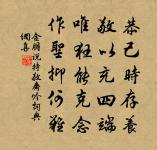 恭己時存養
敬以充四端
唯狂能克念
作聖抑何難
金朋說持敬齋吟詞典
網